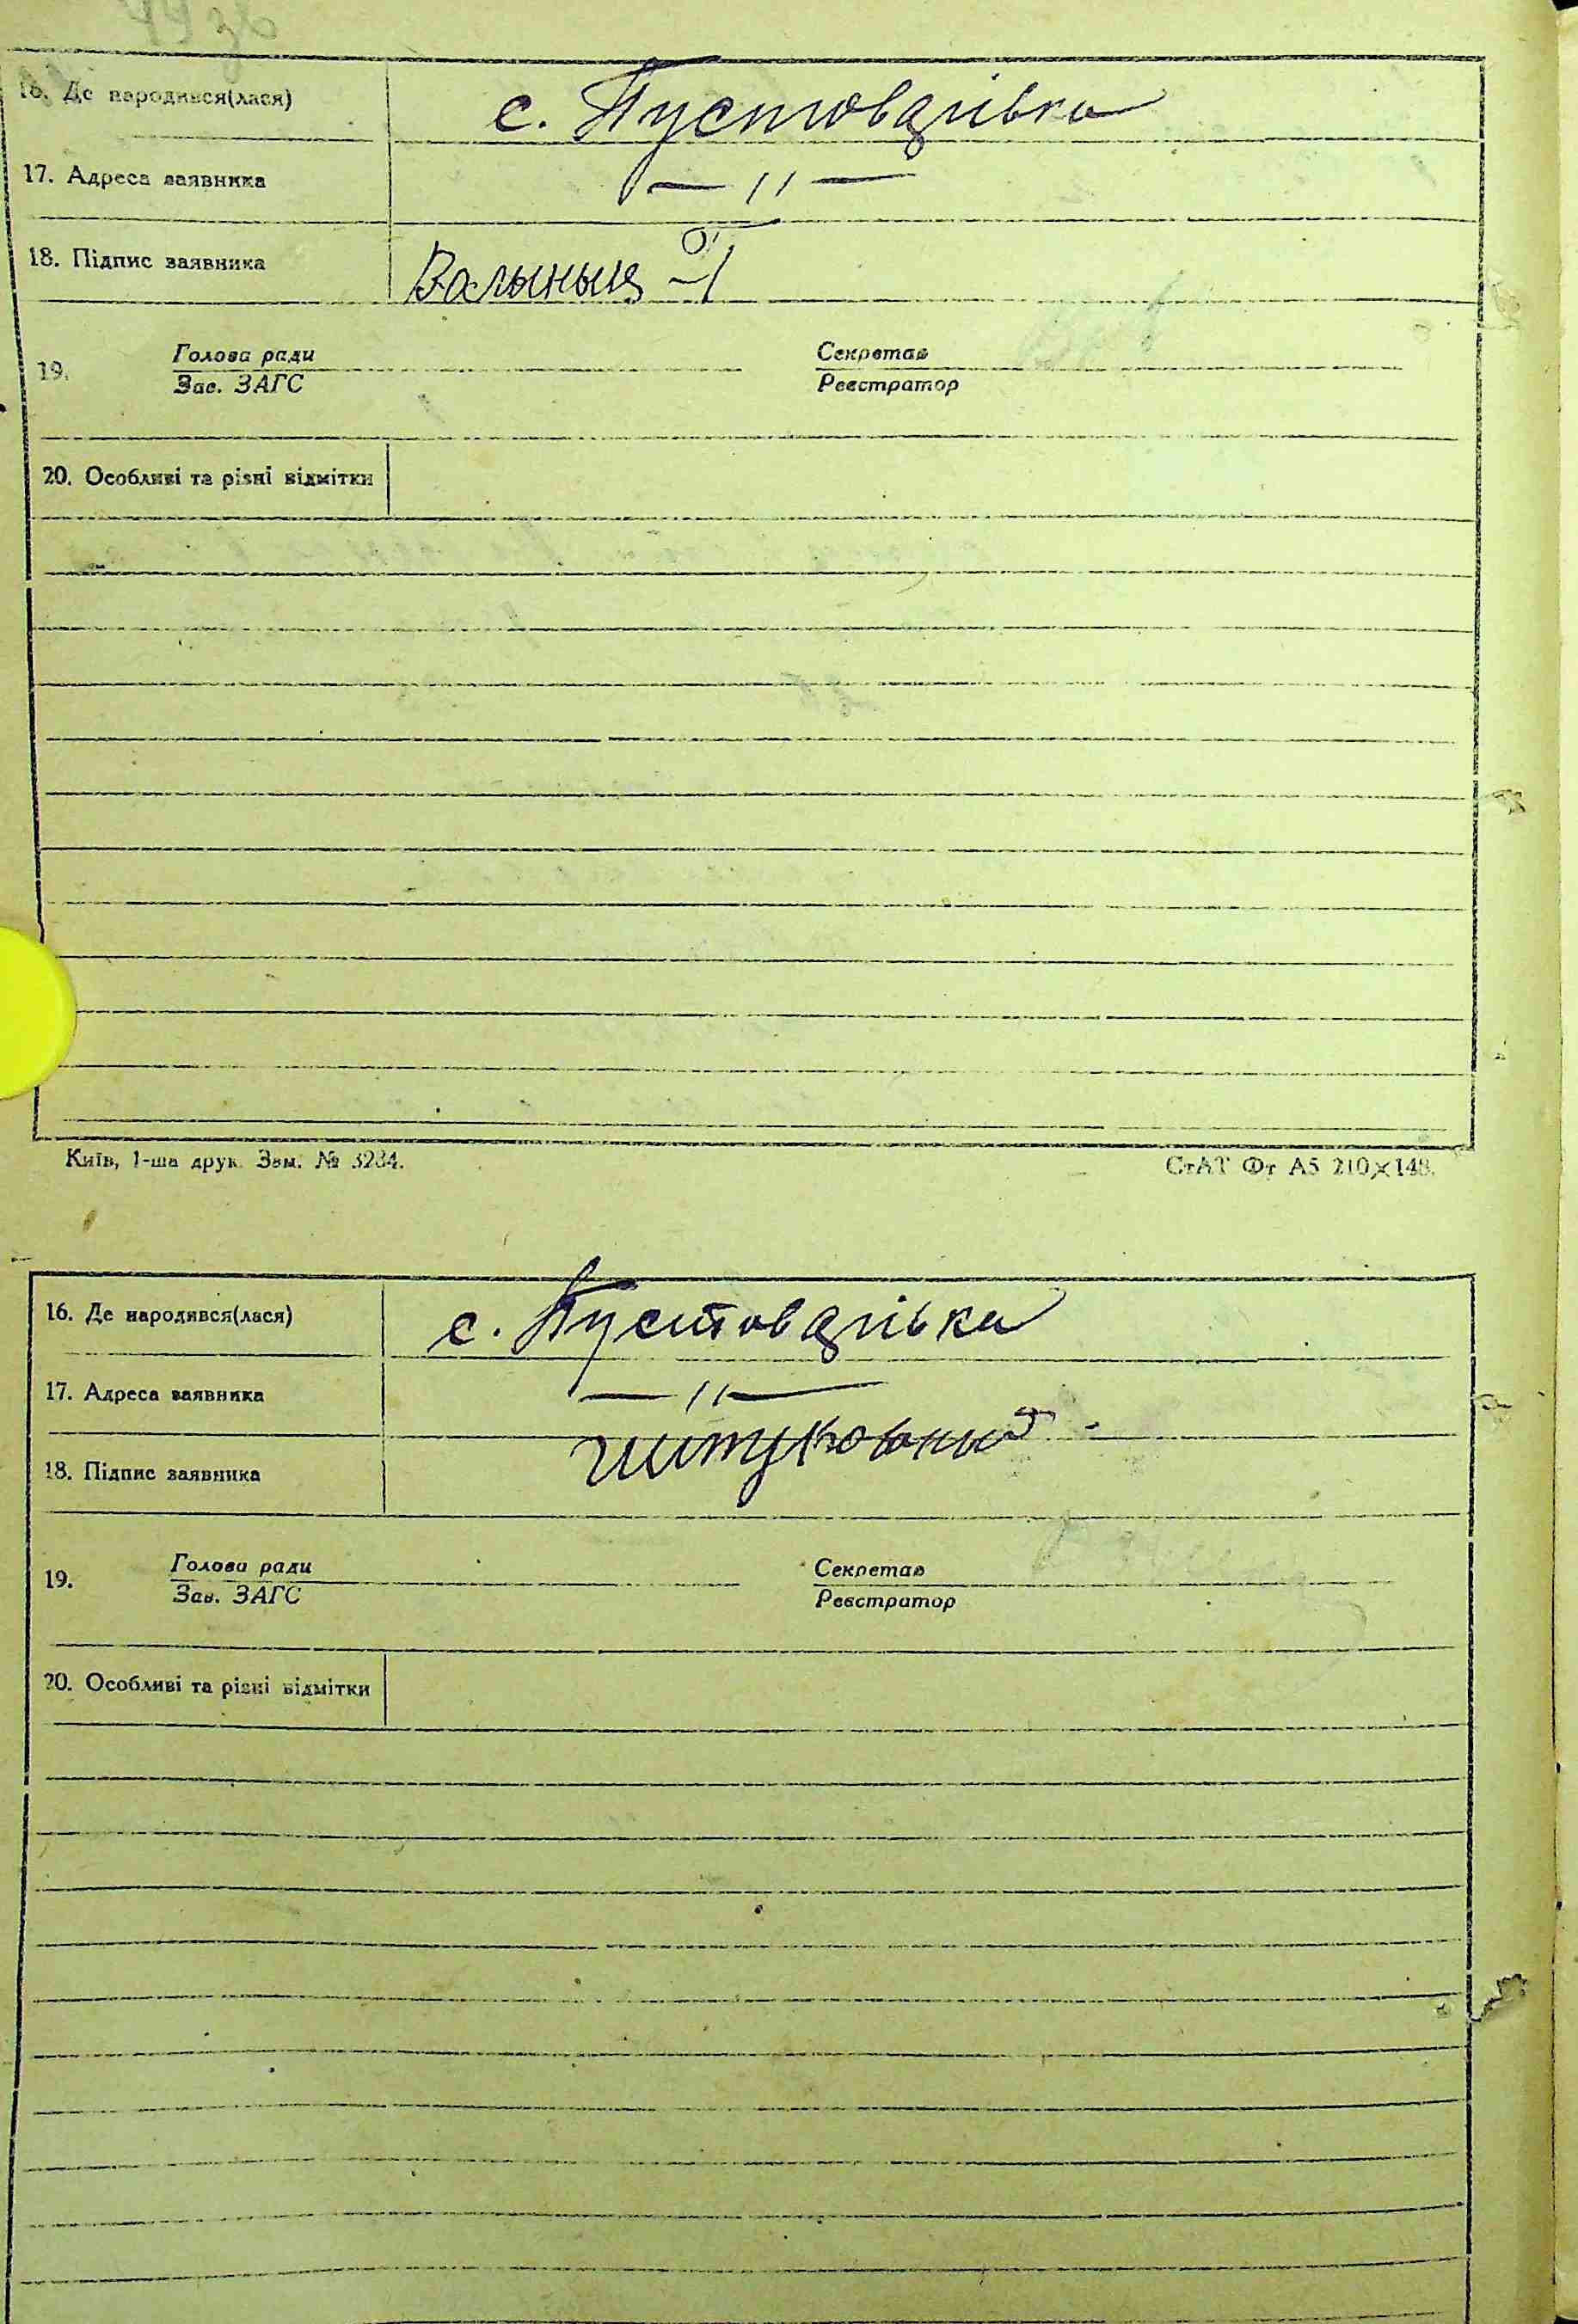 44 зв
16. Де народився(лася) с. Пустоварівка
17. Адреса заявника — 〃 —
18. Підпис заявника Волыныця
19. Голова ради Секретар
Зав. ЗАГС Реєстратор
20. Особливі та різні відмітки
Київ, 1-ша друк. Зам. № 3284. СтАТ Фт А5 210×148.
16. Де народився(лася) с. Пустоварівка
17. Адреса заявника — 〃 —
18. Підпис заявника
19. Голова ради Секретар
Зав. ЗАГС Реєстратор
20. Особливі та різні відмітки